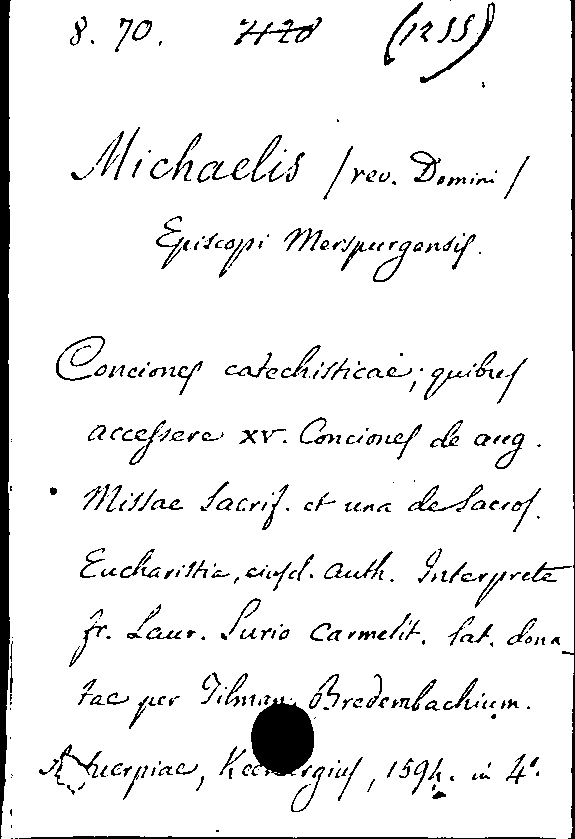 8. 70. 7128 (1255)
Michaelis /rev. Domini/
Episcopi Merspurgensis.
Conciones catechisticae; quibus
accessere xv. Conciones de aug.
Missae Sacrif. et una de Sacros.
Eucharistia, eiusd. auth. Interprete
fr. Laur. Surio Carmelit. lat. dona
tae per Tilman. Bredembachium.
Antuerpiae, 1594. in 4°.